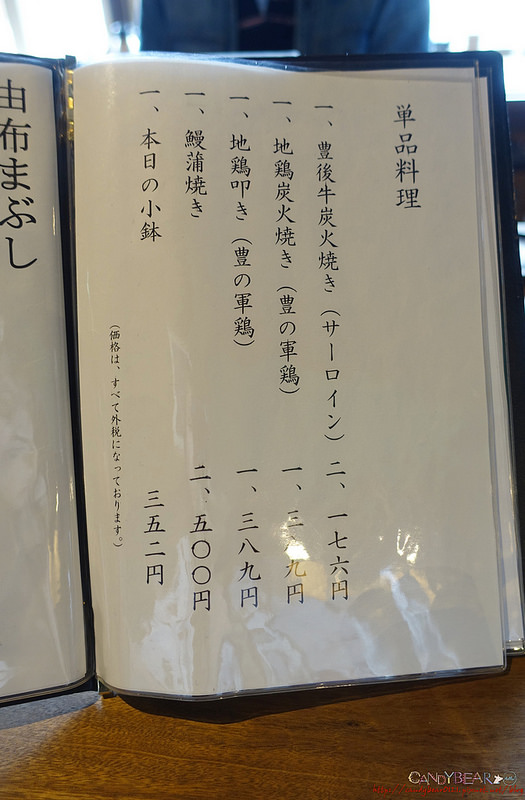 単品料理
一、豊後牛炭火焼き（サーロイン） 二、一七六円
一、地鶏炭火焼き（豊の軍鶏） 一、三 九円
一、地鶏叩き（豊の軍鶏） 一、三八九円
一、鰻蒲焼き 二、五〇〇円
一、本日の小鉢 三五二円
（価格は、すべて外税になっております。）
由布まぶし
CANDYBEAR